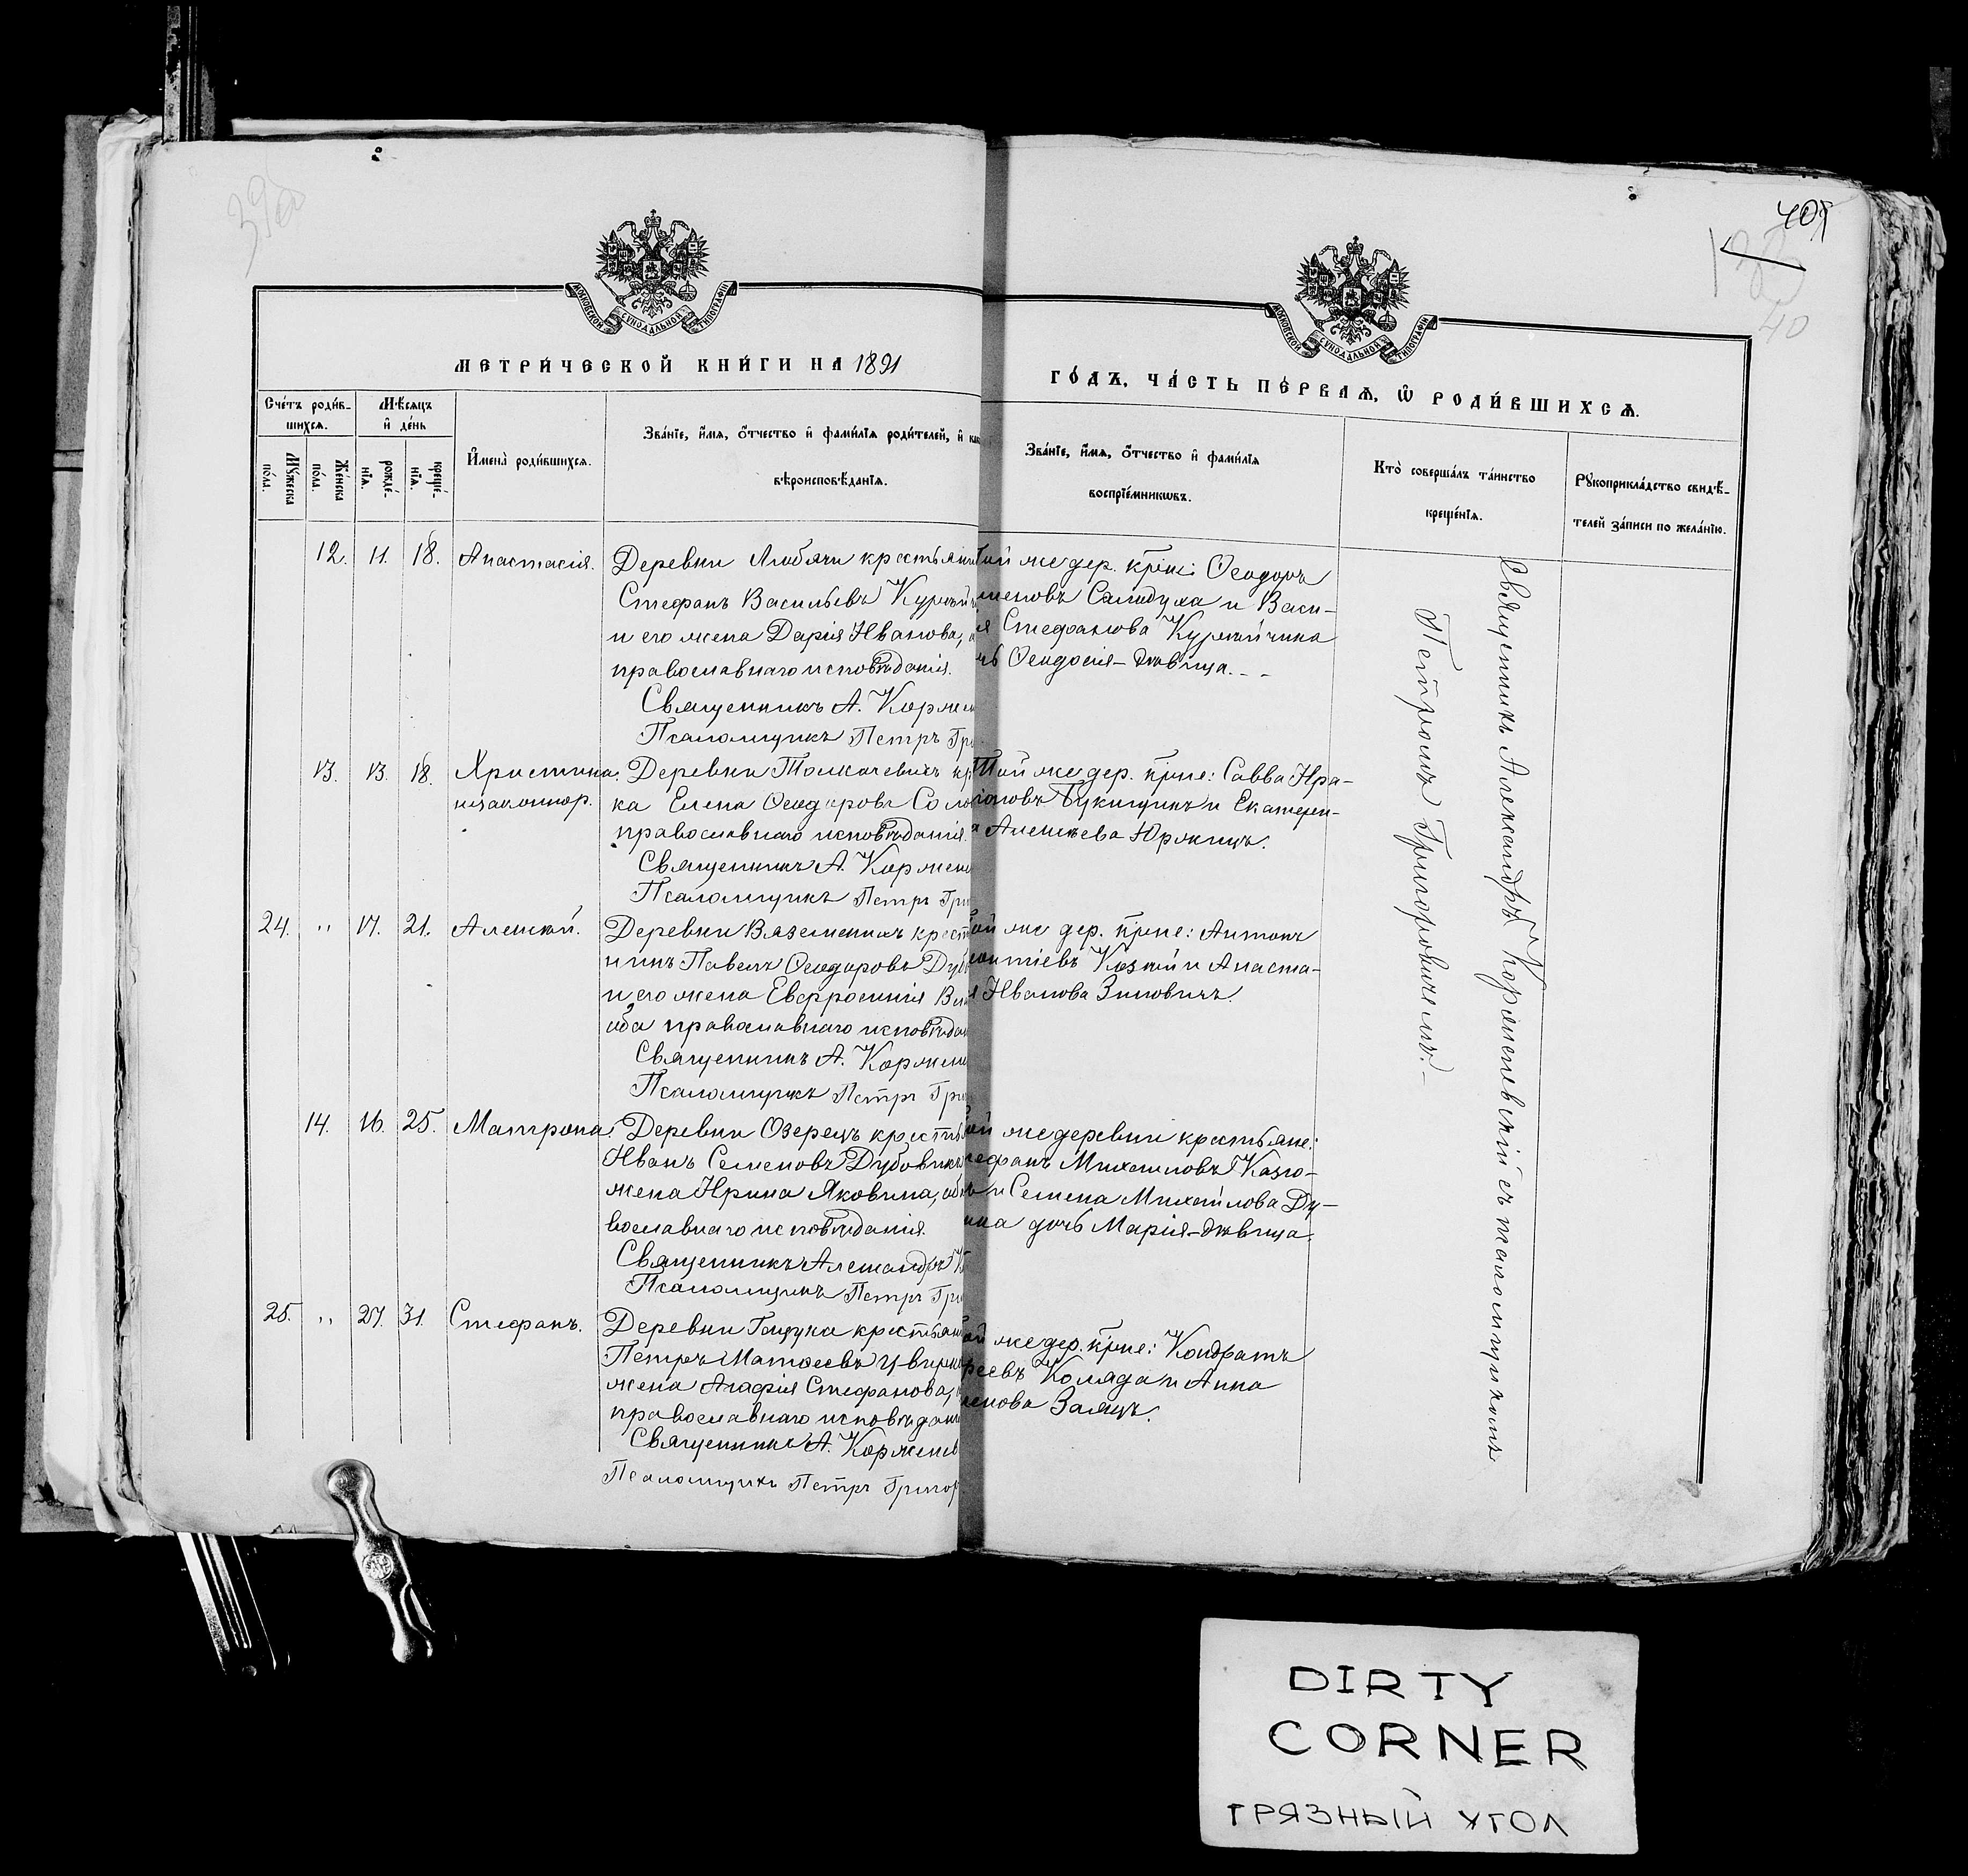 39об
МОСКОВСКОЙ СѴНОДАЛЬНОЙ ТИПОГРАФІИ
МЕТРИ́ЧЕСКОЙ КНИ́ГИ НА 1891
Сче́тъ роди́в-
шихсѧ.
Мѣ́сѧцъ
и҆ де́нь
Мꙋ́жеска
по́ла.
Же́нска
по́ла.
рожде́-
нїѧ.
креще́-
нїѧ.
И҆мена̀ роди́вшихсѧ.
Зва́нїе, и҆́мѧ, ѻ҆́тчество и҆ фами́лїѧ роди́телей, и҆ как
вѣроисповѣ́данїѧ.
12. 11. 18. Анастасія.
Деревни Любячи крестьянин
Стефанъ Васильевъ
и его жена Дарія Иванова, о
православнаго исповѣданія.
Священникъ А. Коржен
Псаломщикъ Петръ Гри
13. 13. 18. Христина
незаконнор.
Деревни Толкачевичъ кр
ка Елена Ѳеодорова Соло
православнаго исповѣданія.
Священникъ А. Коржен
Псаломщикъ Петръ Гри
24. " 17. 21. Алексѣй.
Деревни крест
нинъ Павелъ Ѳеодоровъ Дуб
и его жена Евфросинія
оба православнаго исповѣдан
Священникъ А. Коржен
Псаломщикъ Петръ Гри
14. 16. 25. Матрона.
Деревни Озерецъ кресть
Иванъ Семеновъ Дубовик
жена Ирина Яковлева, об
вославнаго исповѣданія.
Священникъ Александръ К
Псаломщикъ Петръ Гри
25. " 27. 31. Стефанъ.
Деревни Гацука крестьян
Петръ Матѳеевъ Цвирк
жена Агафія Стефанова,
православнаго исповѣдані
Священникъ А. Коржене
Псаломщикъ Петръ Григор
40
40
МОСКОВСКОЙ СѴНОДАЛЬНОЙ ТИПОГРАФІИ
ГО́ДЪ, ЧА́СТЬ ПЕ́РВАѦ, Ѽ РОДИ́ВШИХСѦ.
Зва́нїе, и҆́мѧ, ѻ҆́тчество и҆ фами́лїѧ
воспрїе́мникѡвъ.
Кто̀ соверша́лъ та́инство
креще́нїѧ.
Рꙋкоприкла́дство свидѣ́-
телей за́писи по жела́нїю.
той же дер. крне: Ѳеодоръ
меновъ Салидуха и Васи-
я Стефанова Курьянчика
чь Ѳеодосія-дѣвица.
Той же дер. крне: Савва Ира-
Букищикъ и Екатери-
а Алексѣева Юржицъ.
ой же дер. крне: Антонъ
онтіевъ Козей и Анаста-
я Иванова Зиновичъ.
ой же деревни крестьяне:
тефанъ Михаиловъ Казю-
и Семена Михайлова Ду-
ика дочь Марія-дѣвица.
ой же дер. крне: Кондратъ
реевъ Коляда и Анна
Заяцъ.
Священникъ Александръ Корженевскій съ псаломщикомъ
Петромъ Григоровичемъ.
DIRTY
CORNER
ГРЯЗНЫЙ УГОЛ